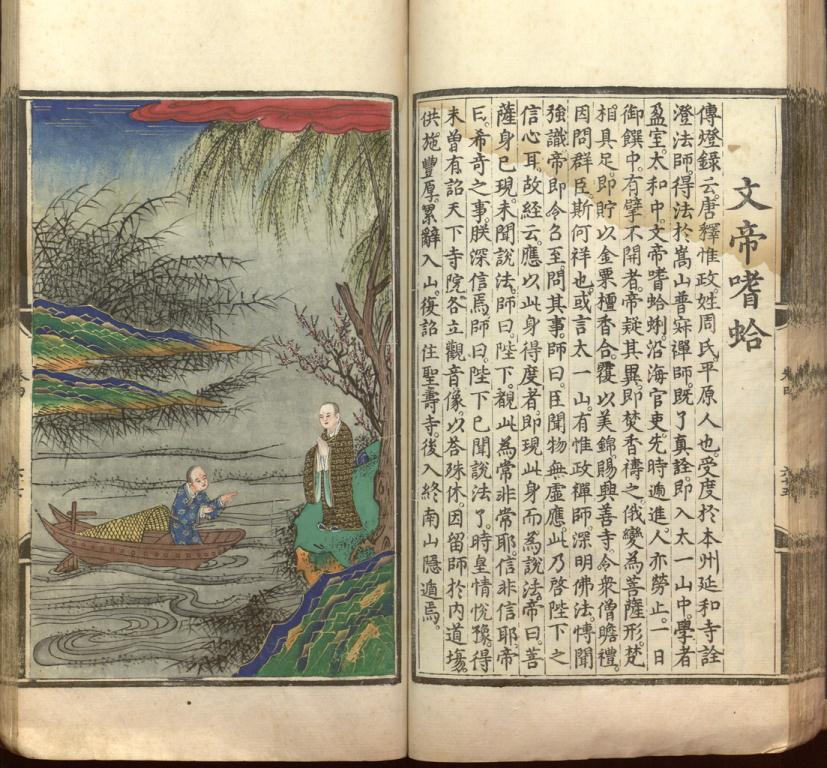 文帝嗜蛤
傳燈錄云。唐釋惟政。姓周氏。平原人也。受度於本州延和寺詮
澄法師。得法於嵩山普寂禪師。既了真詮。即入太一山中。學者
盈室。太和中。文帝嗜蛤蜊。沿海官吏。先時遞進。人亦勞止。一日
御饌中。有擘不開者。帝疑其異。即焚香禱之。俄變為菩薩形。梵
相具足。即貯以金粟檀香合。覆以美錦。賜興善寺。令衆僧瞻禮。
因問群臣。斯何祥也。或言太一山。有惟政禪師。深明佛法。愽聞
強識。帝即令召至。問其事。師曰。臣聞物無虛應。此乃啓陛下之
信心耳。故經云。應以此身得度者。即現此身而為說法。帝曰。菩
薩身已現。未聞說法。師曰。陛下。覩此為常非常耶。信非信耶。帝
曰。希奇之事。朕深信焉。師曰。陛下已聞說法了。時皇情悅豫。得
未曾有。詔天下寺院。各立觀音像。以荅殊休。因留師於內道塲。
供施豐厚。累辭入山。復詔住聖壽寺。後入終南山隱遁焉。